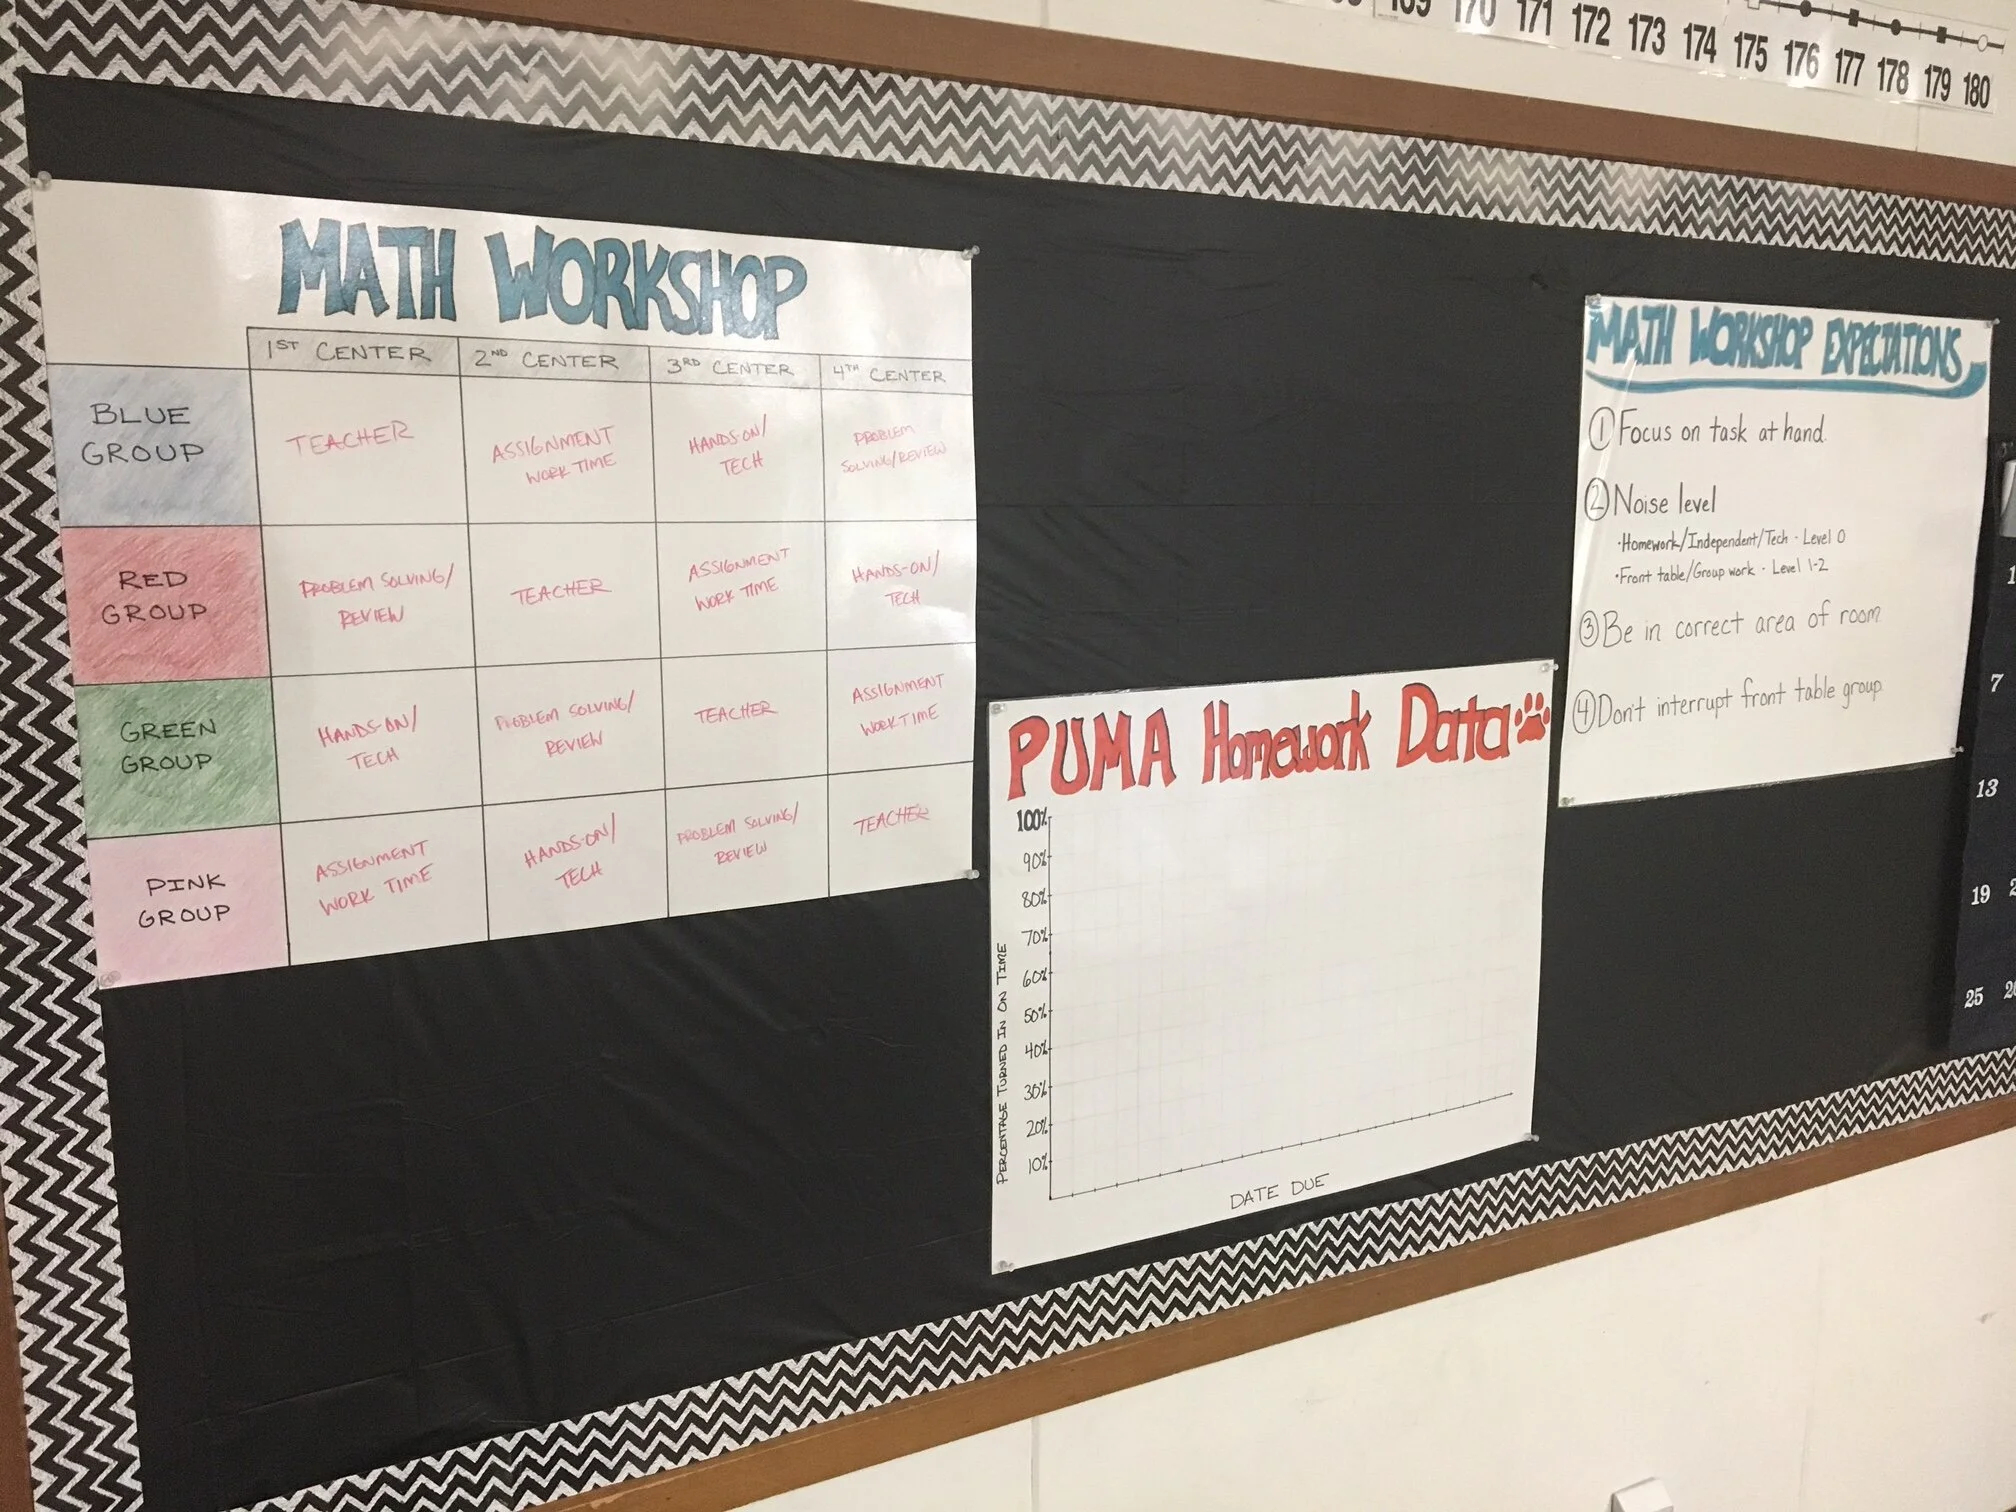 170 171 172 173 174 175 176 177 178 179 180
MATH WORKSHOP
1ST CENTER 2ND CENTER 3RD CENTER 4TH CENTER
BLUE GROUP
TEACHER
ASSIGNMENT WORK TIME
HANDS-ON/ TECH
PROBLEM SOLVING/REVIEW
RED GROUP
PROBLEM SOLVING/ REVIEW
TEACHER
ASSIGNMENT WORK TIME
HANDS-ON/ TECH
GREEN GROUP
HANDS-ON/ TECH
PROBLEM SOLVING/ REVIEW
TEACHER
ASSIGNMENT WORK TIME
PINK GROUP
ASSIGNMENT WORK TIME
HANDS-ON/ TECH
PROBLEM SOLVING/ REVIEW
TEACHER
PUMA Homework Data
100%
90%
80%
70%
60%
50%
40%
30%
20%
10%
PERCENTAGE TURNED IN ON TIME
DATE DUE
MATH WORKSHOP EXPECTATIONS
1 Focus on task at hand.
2 Noise level
•Homework/Independent/Tech - Level 0
•Front table/Group work - Level 1-2
3 Be in correct area of room.
4 Don't interrupt front table group.
7
13
19
25